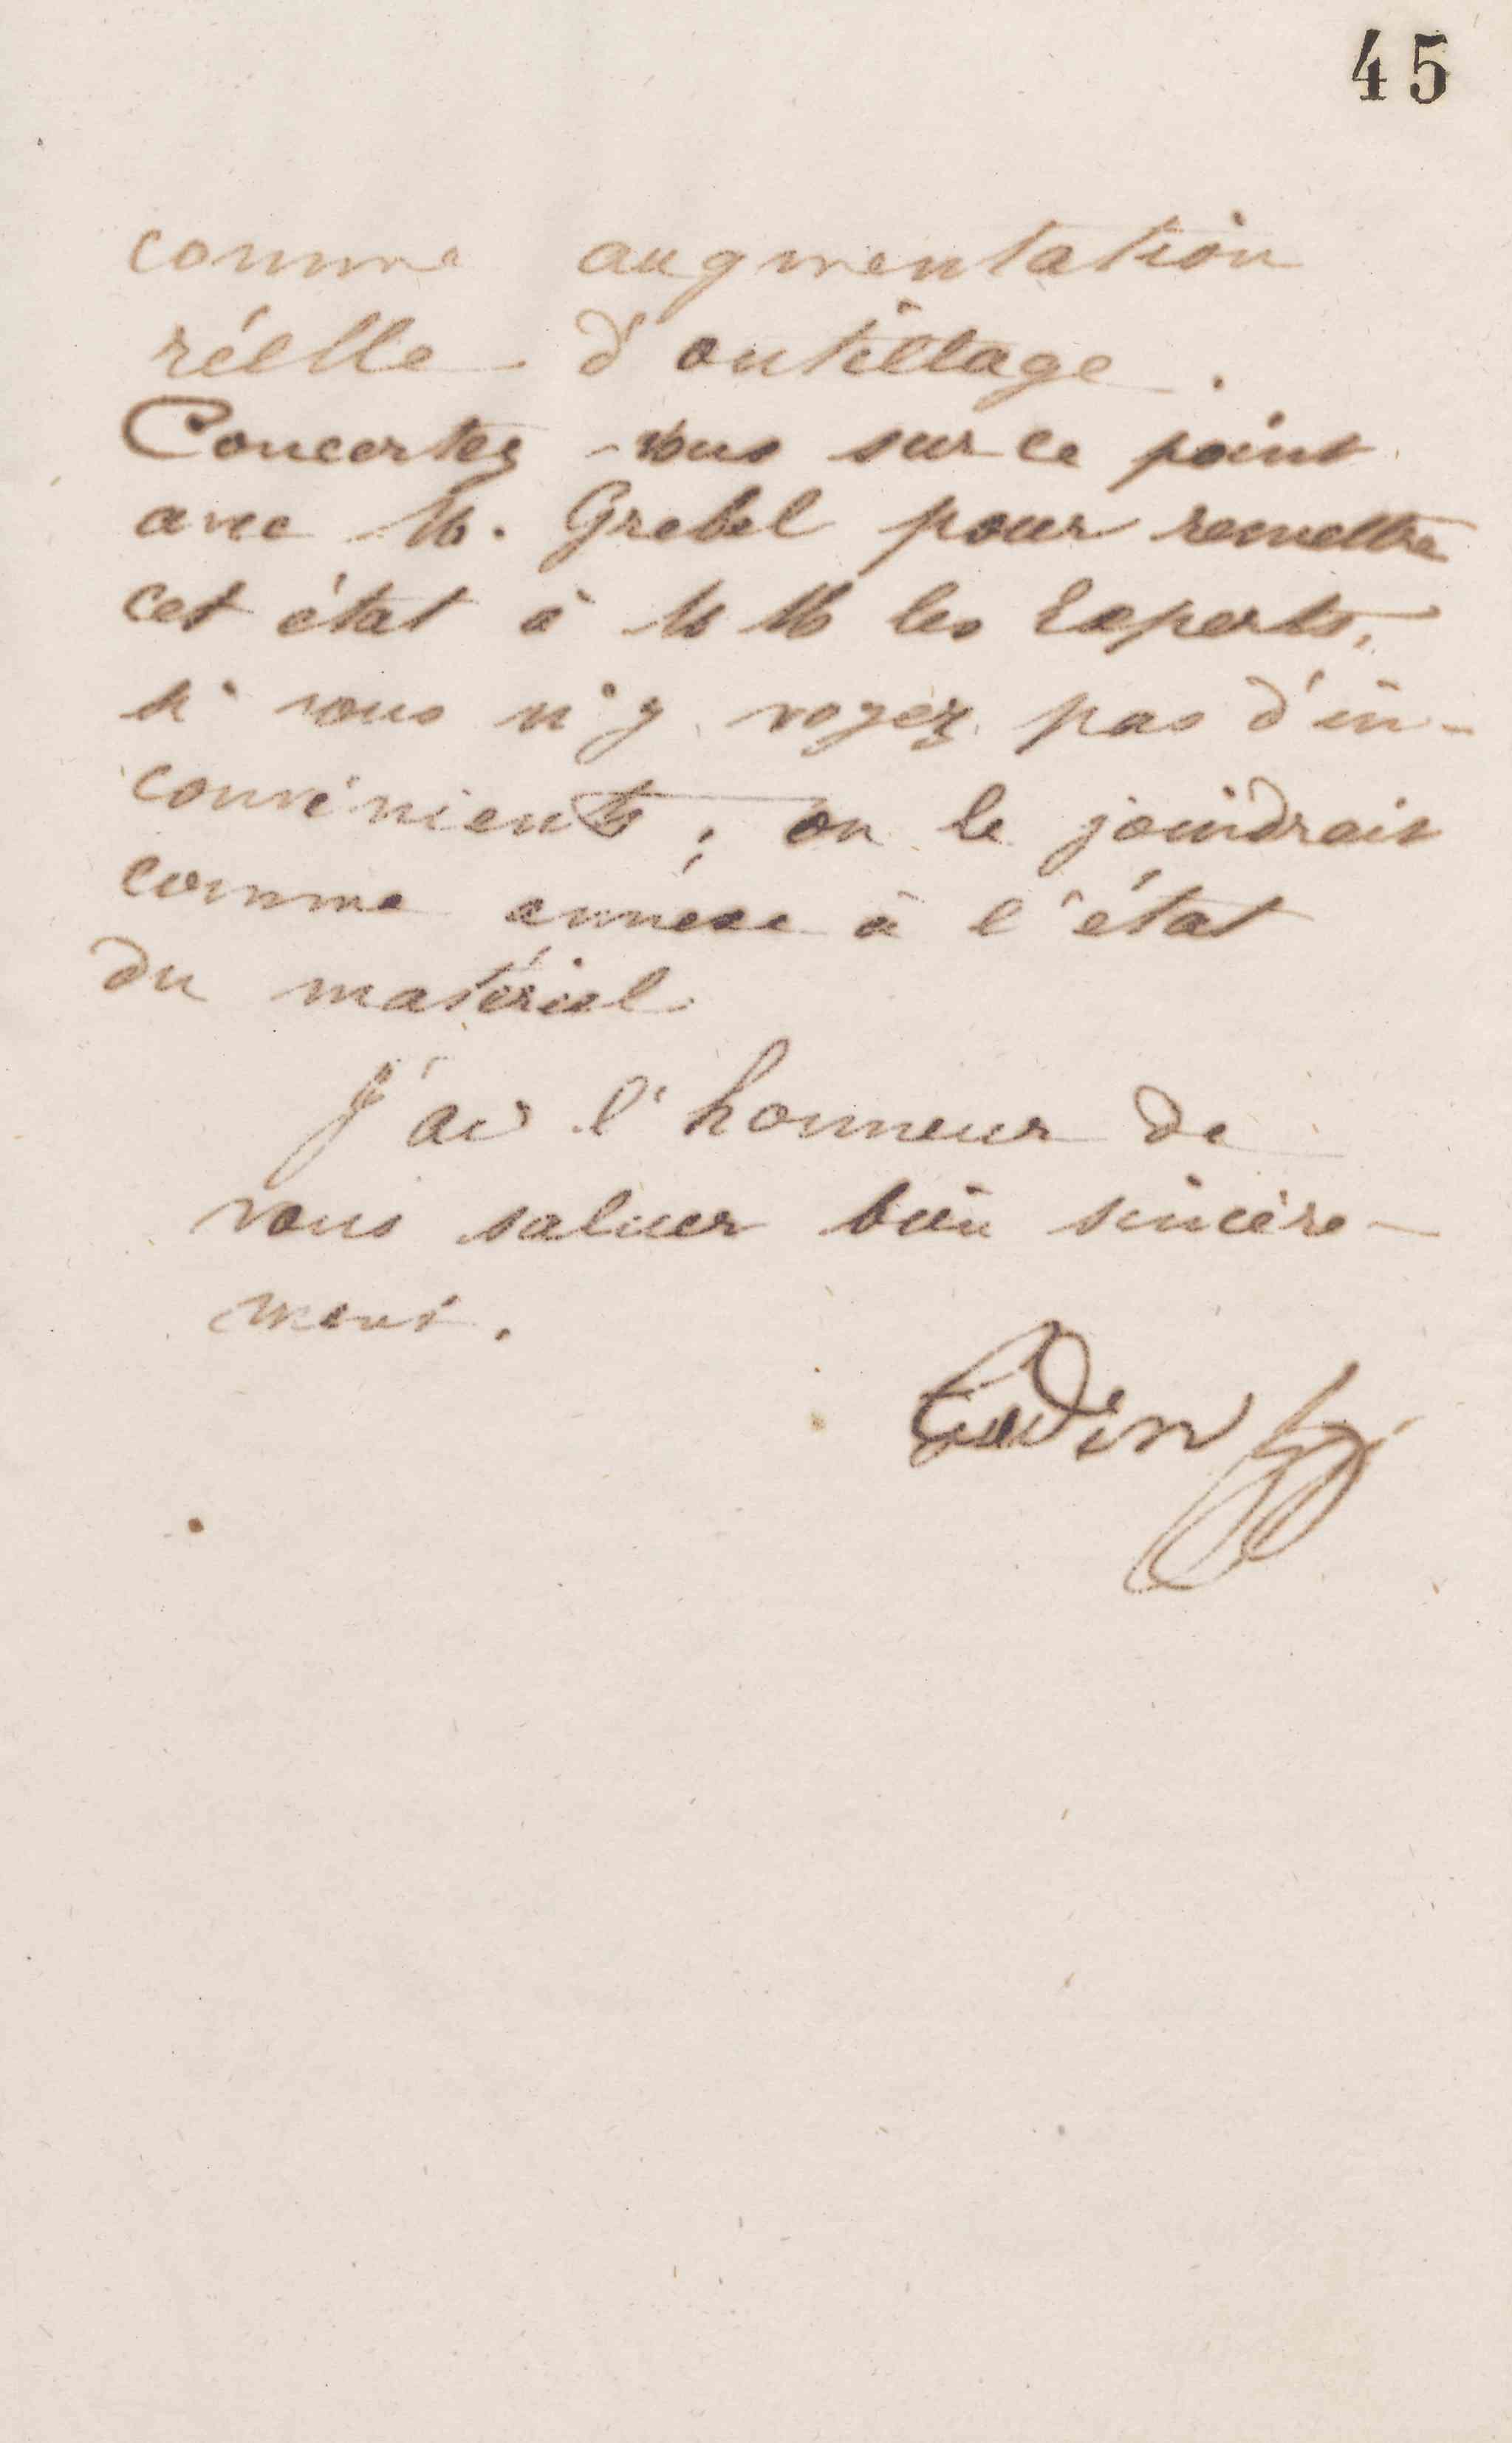 45
comme augmentation
réelle d'outillage.
Concertez-vous sur ce point
avec M. Grebel pour remettre
cet état à MM les Experts,
si vous n'y voyez pas d'in-
convénients ; on le joindrait
comme annexe à l'état
du matériel
J'ai l'honneur de
vous saluer bien sincère-
ment.
Godin